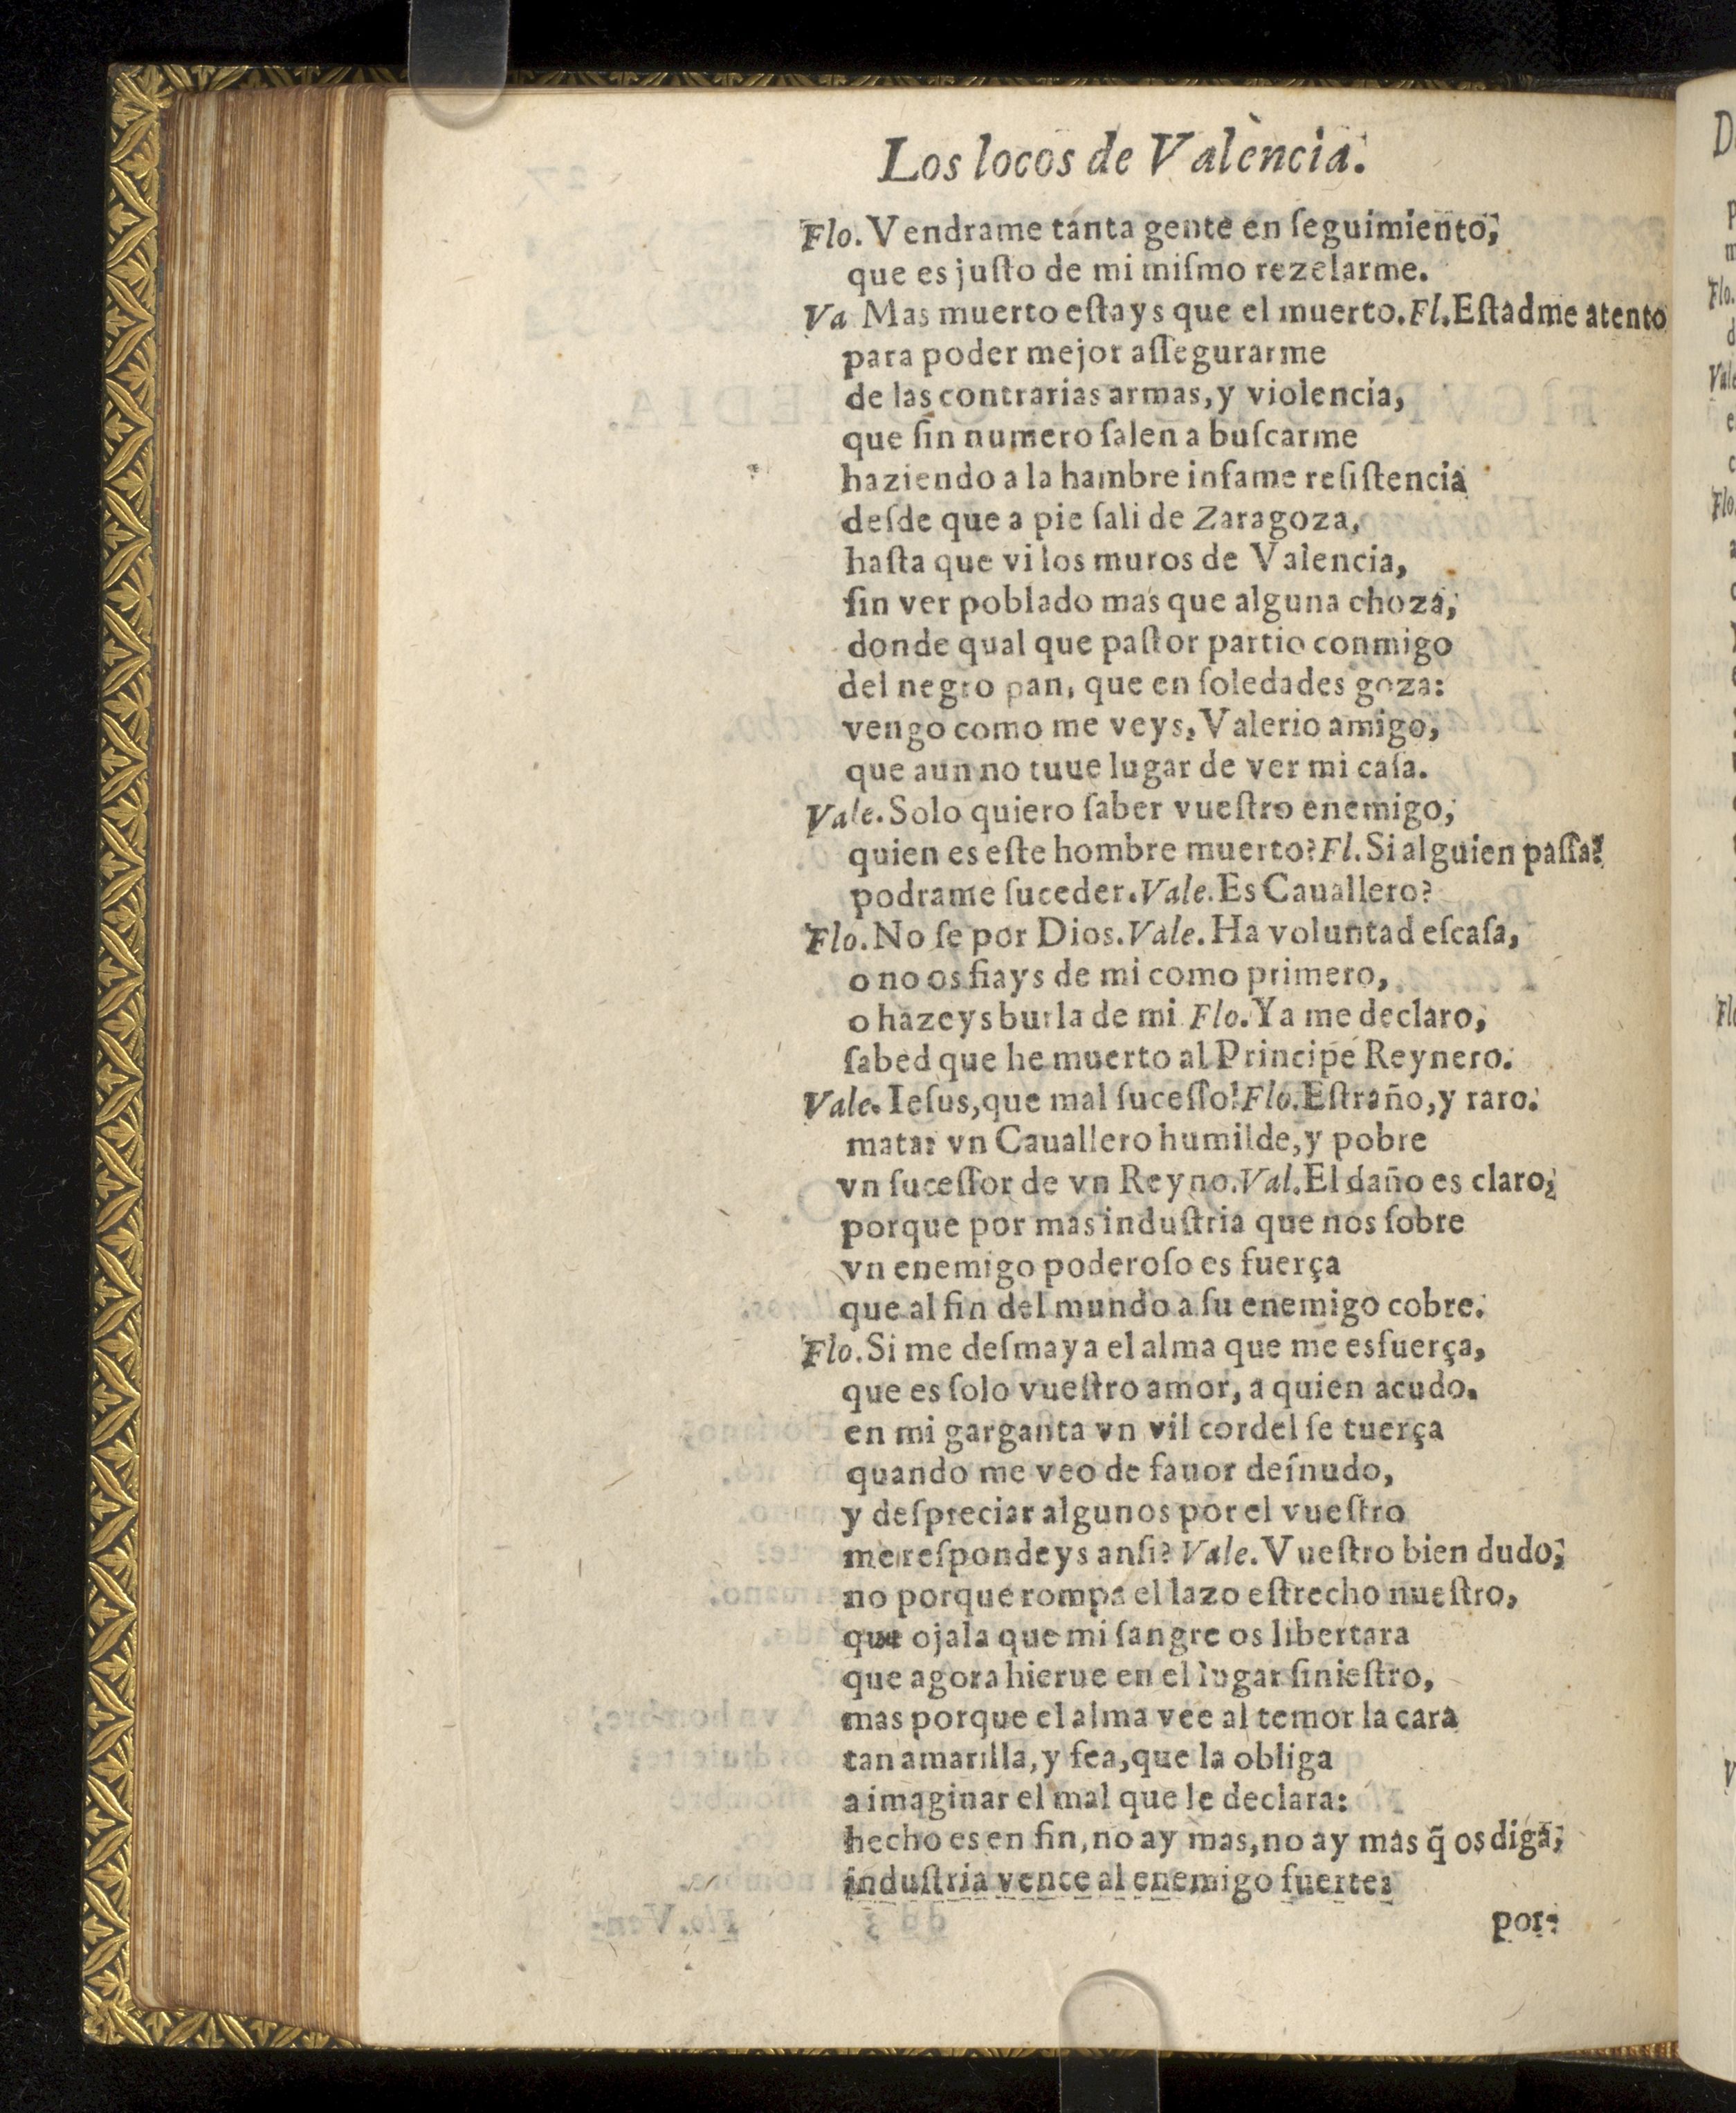 Los locos de Valencia.
Flo. Vendrame tanta gente en ſeguimiento,
que es juſto de mi miſmo rezelarme.
Va Mas muerto eſtays que el muerto. Fl. Eſtadme atento
para poder mejor aſſegurarme
de las contrarias armas, y violencia,
que ſin numero ſalen a buſcarme
haziendo a la hambre infame reſiſtencia
deſde que a pie ſali de Zaragoza,
haſta que vi los muros de Valencia,
ſin ver poblado mas que alguna choza,
donde qual que paſtor partio conmigo
del negro pan, que en ſoledades goza:
vengo como me veys, Valerio amigo,
que aun no tuue lugar de ver mi caſa.
Vale. Solo quiero ſaber vueſtro enemigo,
quien es eſte hombre muerto? Fl. Si alguien paſſa?
podrame ſuceder. Vale. Es Cauallero?
Flo. No ſe por Dios. Vale. Ha voluntad eſcaſa,
o no os fiays de mi como primero,
o hazeys burla de mi Flo. Ya me declaro,
ſabed que he muerto al Principe Reynero.
Vale. Ieſus, que mal ſuceſſo! Flo. Eſtraño, y raro.
matar vn Cauallero humilde, y pobre
vn ſuceſſor de vn Reyno. Val. El daño es claro,
porque por mas induſtria que nos ſobre
vn enemigo poderoſo es fuerça
que al fin del mundo a ſu enemigo cobre.
Flo. Si me deſmaya el alma que me esfuerça,
que es ſolo vueſtro amor, a quien acudo.
en mi garganta vn vil cordel ſe tuerça
quando me veo de fauor deſnudo,
y deſpreciar algunos por el vueſtro
me reſpondeys anſi? Vale. Vueſtro bien dudo,
no porque rompa el lazo eſtrecho nueſtro,
que ojala que mi ſangre os libertara
que agora hierue en el lugar ſinieſtro,
mas porque el alma vee al temor la cara
tan amarilla, y fea, que la obliga
a imaginar el mal que le declara:
hecho es en fin, no ay mas, no ay mas q̃ os diga,
induſtria vence al enemigo fuerte:
por-